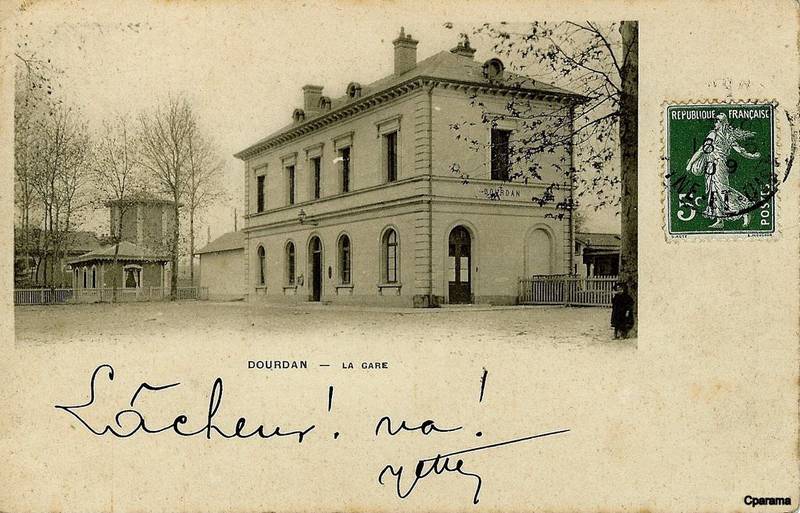 DOURDAN
RÉPUBLIQUE FRANÇAISE
5c
POSTES
DOURDAN — LA GARE
Lâcheur! va!
Cparama